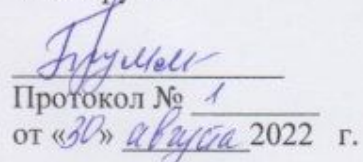 Протокол № 1
от «30» августа 2022 г.